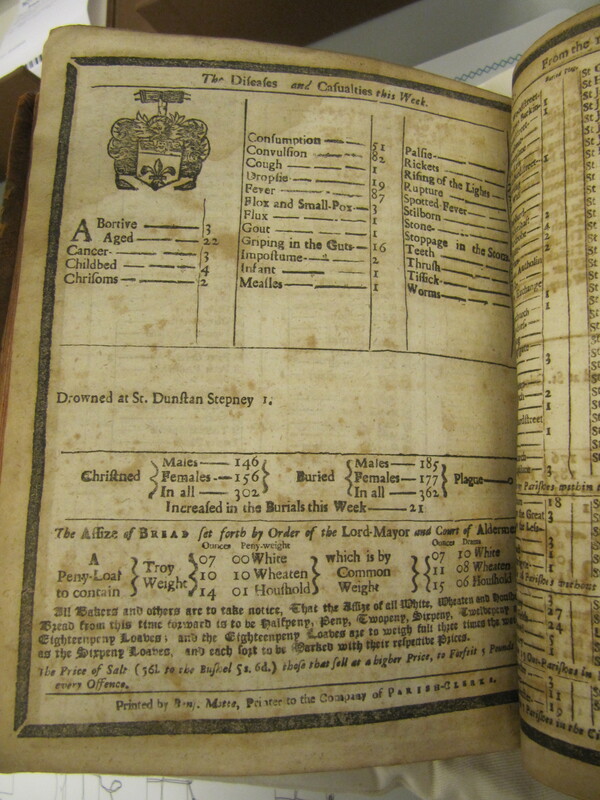 The Diseases and Casualties this Week.
ABortive 3
Aged 22
Cancer 3
Childbed 4
Chrisoms 2
Conſumption 51
Convulſion 82
Cough 1
Dropſie 19
Fever 87
Flox and Small-Pox 3
Flux 1
Gout 1
Griping in the Guts 16
Impoſtume 2
Infant 1
Meaſles 1
Palſie
Rickets
Riſing of the Lights
Rupture
Spotted Fever
Stilborn
Stone
Stoppage in the
Teeth
Thruſh
Tiſſick
Worms
Drowned at St. Dunſtan Stepney 1.
Chriſtned Males 146 Females 156 In all 302 Buried Males 185 Females 177 In all 362 Plague
Increaſed in the Burials this Week 21
The Aſſize of BREAD ſet forth by Order of the Lord-Mayor and Court of
Ounces Peny-weight Ounces Drams
A Troy 07 00 White which is by 07 10 White
Peny-Loaf Weight 10 10 Wheaten Common 11 08 Wheaten
to contain 14 01 Houſhold Weight 15 06 Houſhold
All Bakers and others are to take notice, That the Aſſize of all White, Wheaten and
Bread from this time forward is to be Halfpeny, Peny, Twopeny, Sixpeny,
Eighteenpeny Loaves; and the Eighteenpeny Loaves are to weigh full three times the
as the Sixpeny Loaves, and each ſort to be Marked with their reſpective Prices.
The Price of Salt (56l. to the Buſhel 5s. 6d.) thoſe that ſell at a higher Price, to Forfeit 5
every Offence.
Printed by Benj. Motte, Printer to the Company of PARISH-CLERKS.
From the